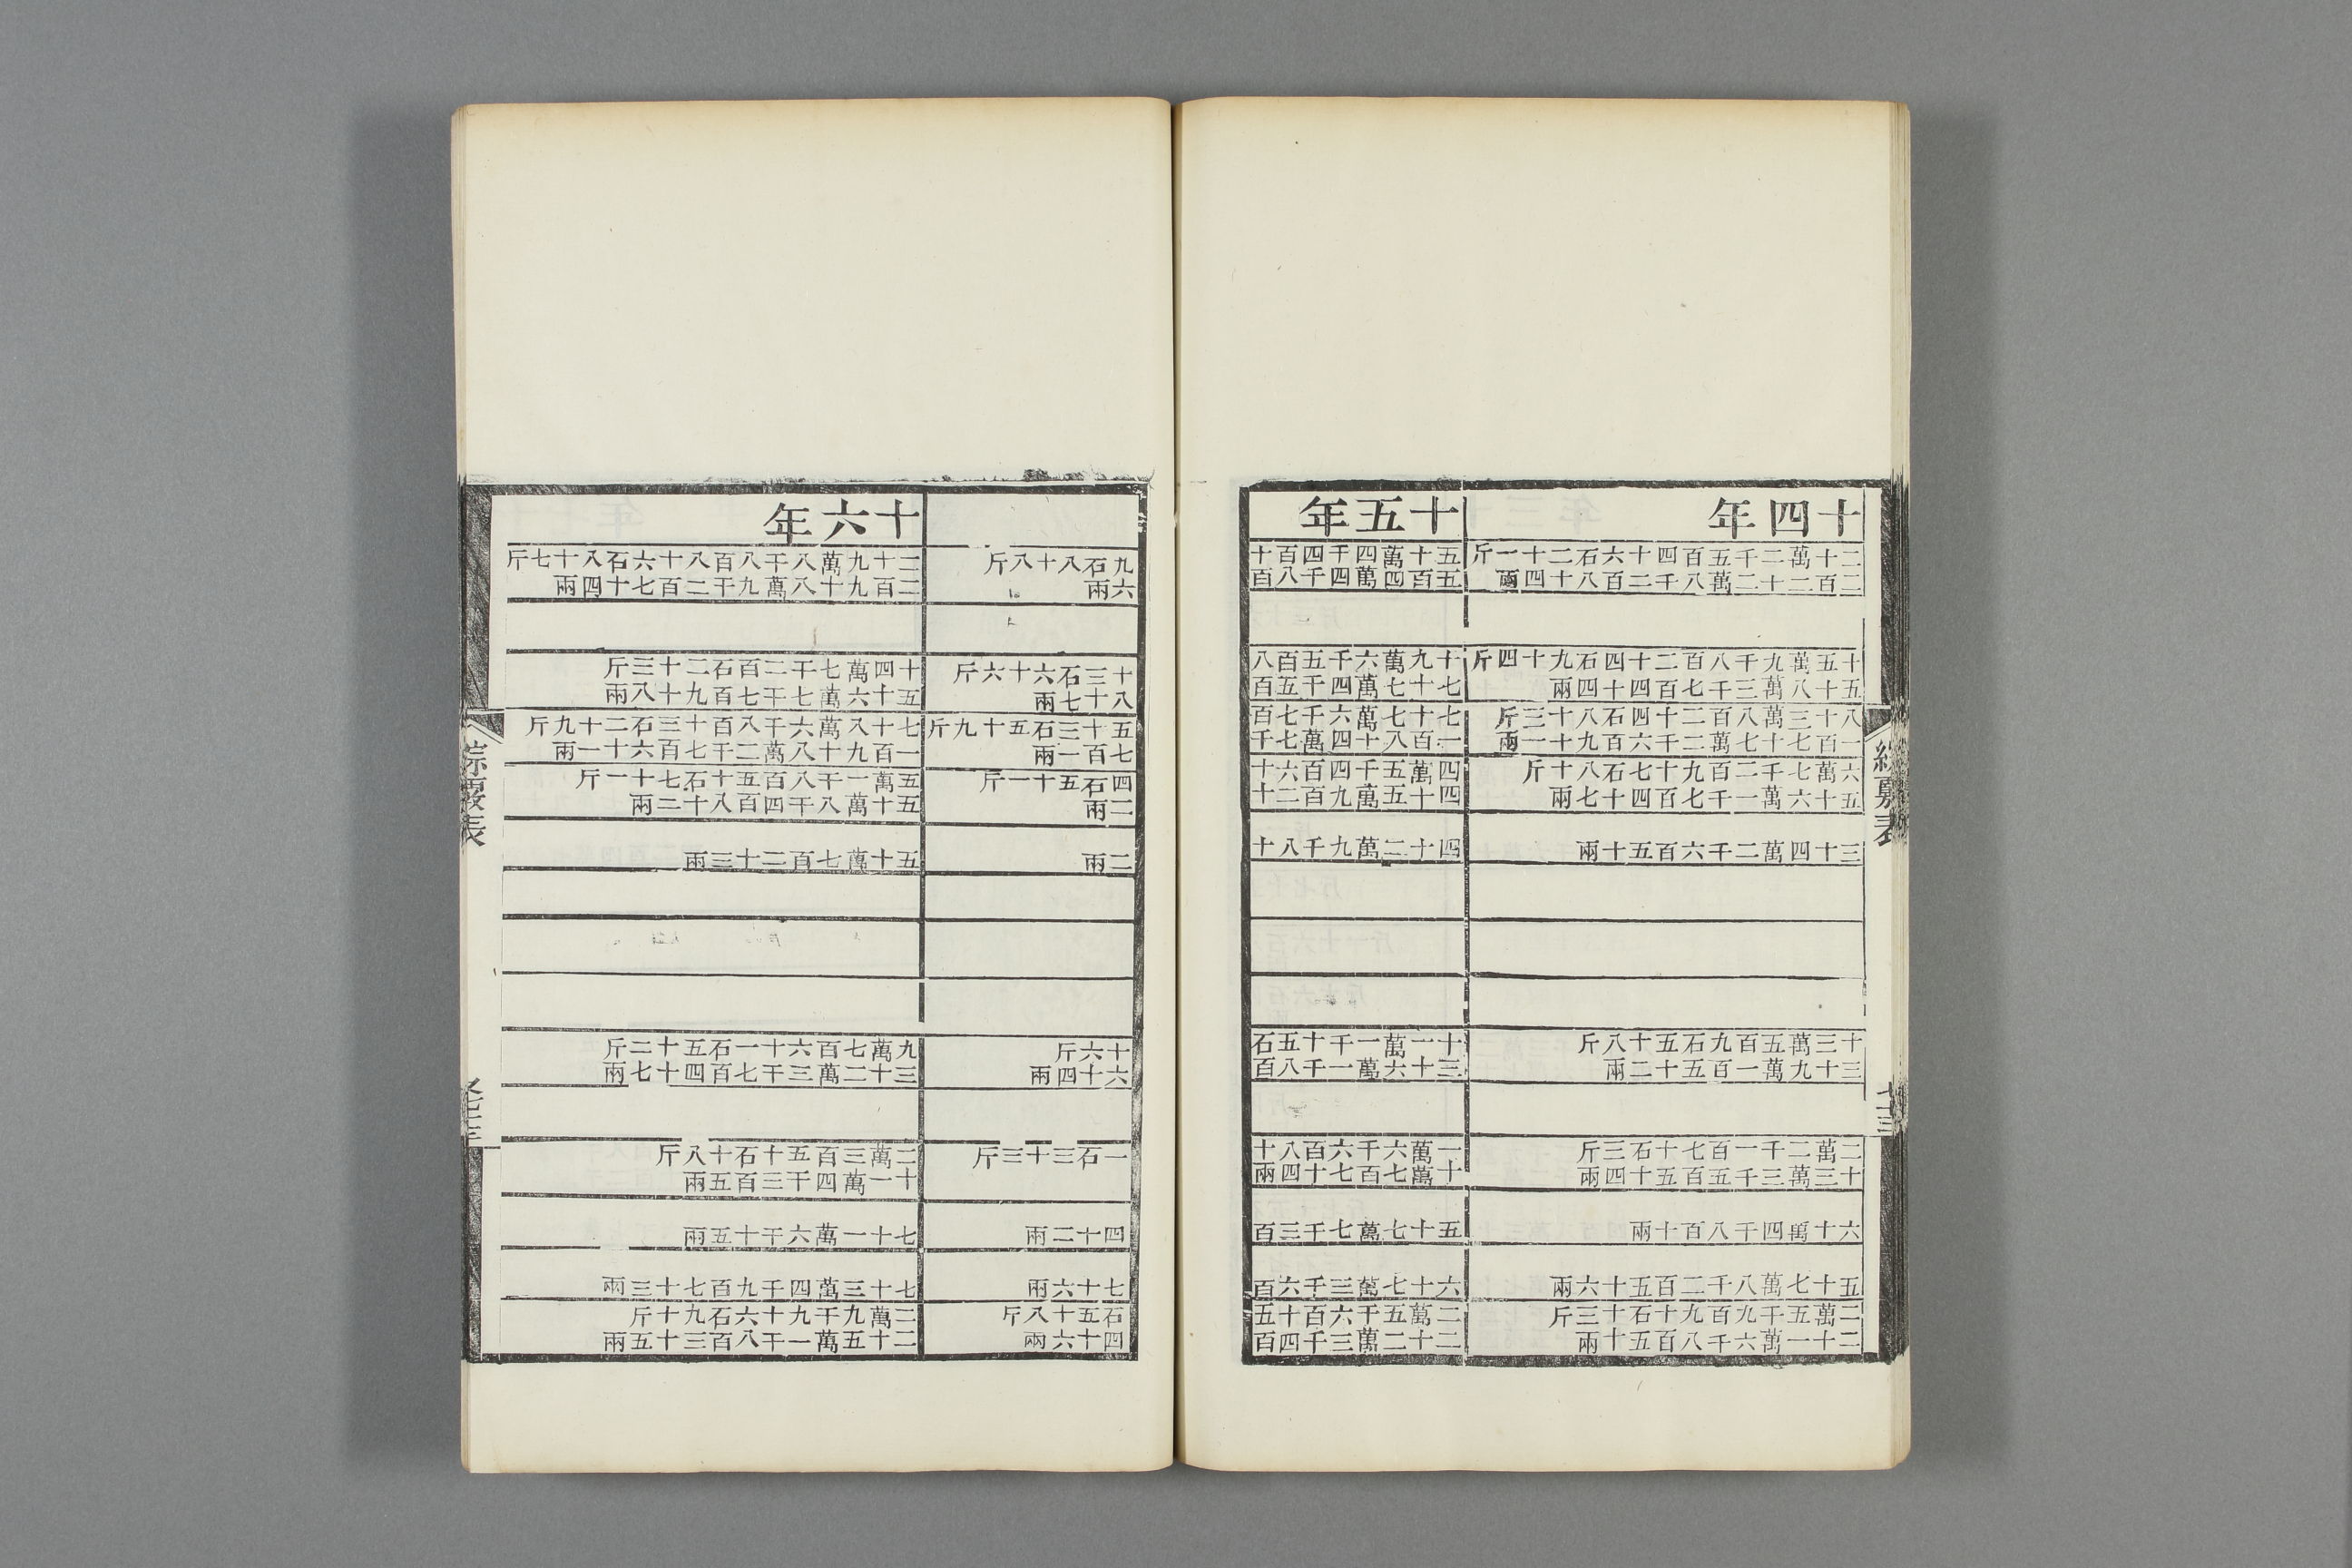 綜覈表
七十三
十四年
二十萬二千五百四十六石二十一斤
二百二十二萬八千二百八十四兩
十五萬九千八百二十四石九十四斤
五十八萬三千七百四十四兩
八十三萬八百二十四石八十三斤
一百七十七萬二千六百九十一兩
六萬七千二百九十七石八十斤
五十六萬一千七百四十七兩
三十四萬二千六百五十兩
十三萬五百九石五十八斤
三十九萬一百五十二兩
二萬二千一百七十石三斤
十三萬三千五百五十四兩
六十萬四千八百十兩
五十七萬八千二百五十六兩
二萬五千九百九十石十三斤
二十一萬六千八百五十兩
十五年
五十萬四千四百十
五百四萬四千八百
十九萬六千五百八
七十七萬四千五百
七十七萬六千七百
一百八十四萬七千
四萬五千四百六十
四十五萬九百二十
四十二萬九千八十
十一萬一千十五石
三十六萬一千八百
一萬六千六百八十
十萬七百七十四兩
五十七萬七千三百
六十七萬三千六百
二萬五千六百十五
二十二萬三千四百
九石八十八斤
六兩
十三石六十六斤
八十七兩
五十三石五十九斤
七百一兩
四石五十一斤
二兩
二兩
十六斤
六十四兩
一石三十三斤
四十二兩
七十六兩
石五十八斤
四十六兩
十六年
二十九萬八千八百八十六石八十七斤
二百九十八萬九千二百七十四兩
十四萬七千二百石二十三斤
五十六萬七千七百九十八兩
七十八萬六千八百十三石二十九斤
一百九十八萬二千七百六十一兩
五萬一千八百五十石七十一斤
五十萬八千四百八十二兩
五十萬七百二十三兩
九萬七百六十一石五十二斤
三十二萬三千七百四十七兩
二萬三百五十石十八斤
十一萬四千三百五兩
七十一萬六千十五兩
七十三萬四千九百七十三兩
二萬九千九十六石九十斤
二十五萬一千八百三十五兩
綜覈表